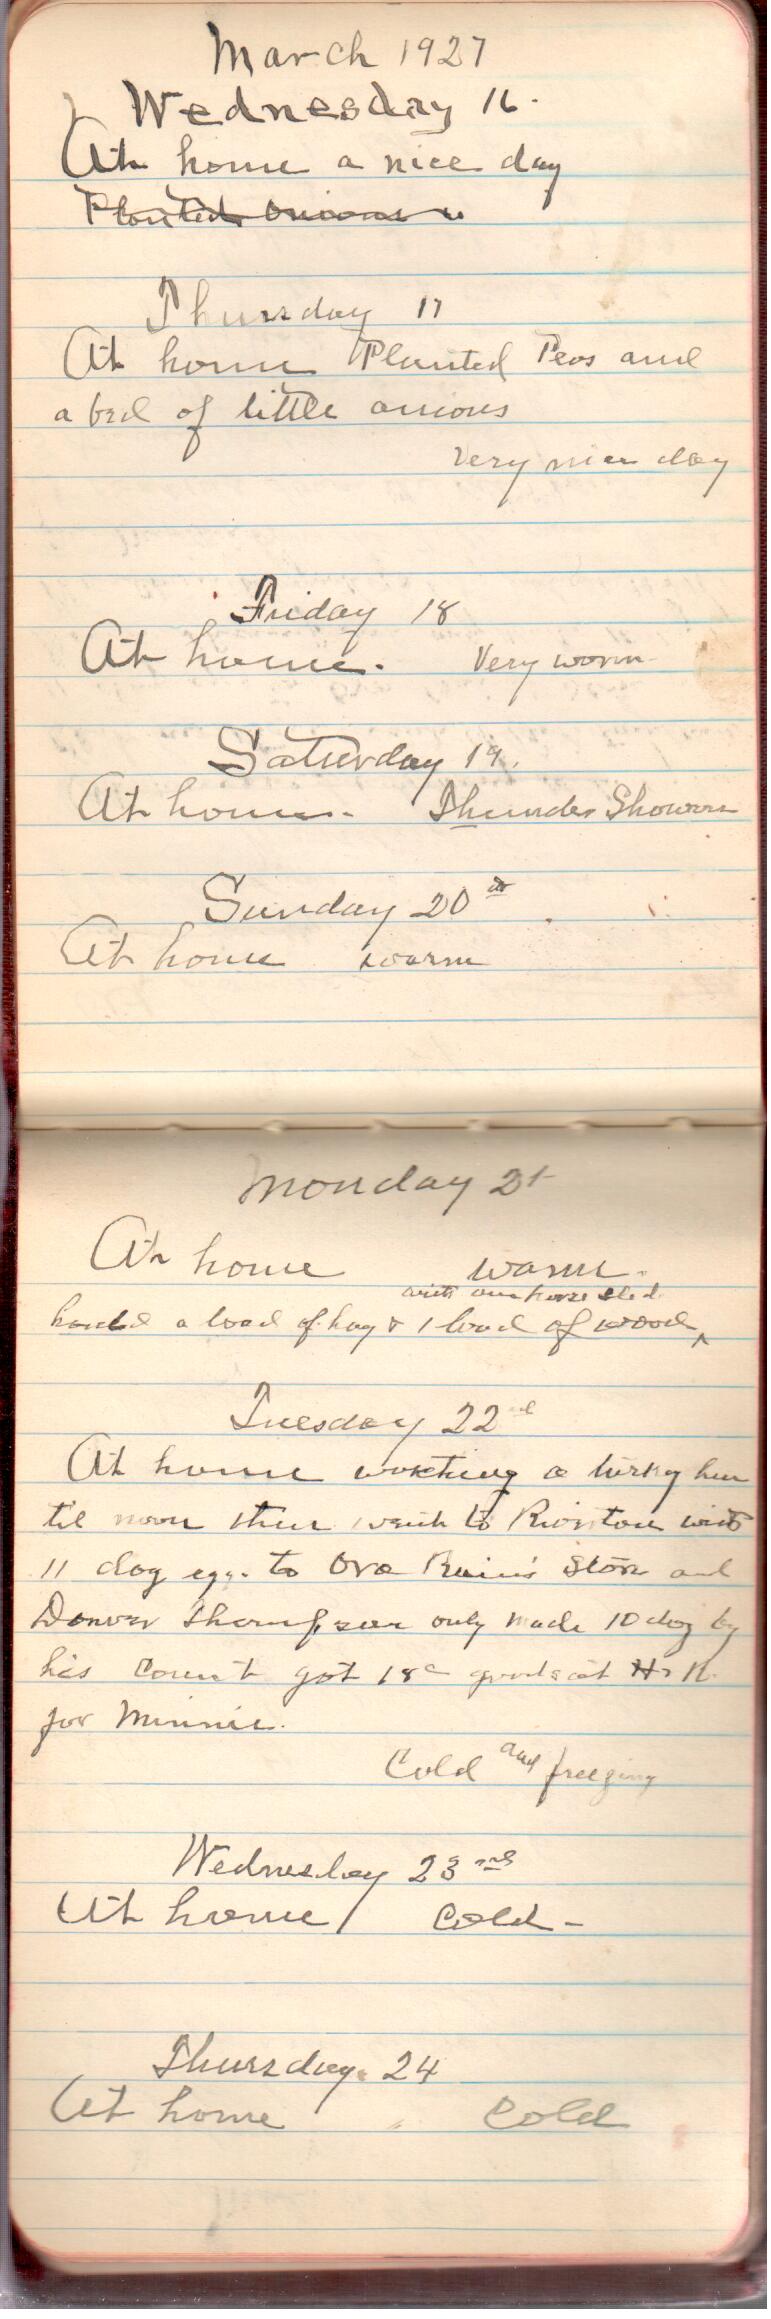 March 1927
Wednesday 16.
At home a nice day
Planted onions
Thursday 17
At home Planted Peas and
a bed of little onions
Very nice day
Friday 18
At home. Very worm
Saturday 19.
At home. Thunder Showers
Sunday 20th
At home warm
Monday 21
At home warm.
with our horse sled
hauled a load of hay & 1 load of wood ^
Tuesday 22nd
At home watching a turky hen
til noon then went to Rivston with
11 doz egg. to Ora Store and
Denver Thompson only made 10 doz by
his count got 18c goods at H. R.
for Minnie.
Cold and freezing
Wednesday 23rd
At home Cold -
Thursday. 24
At home Cold